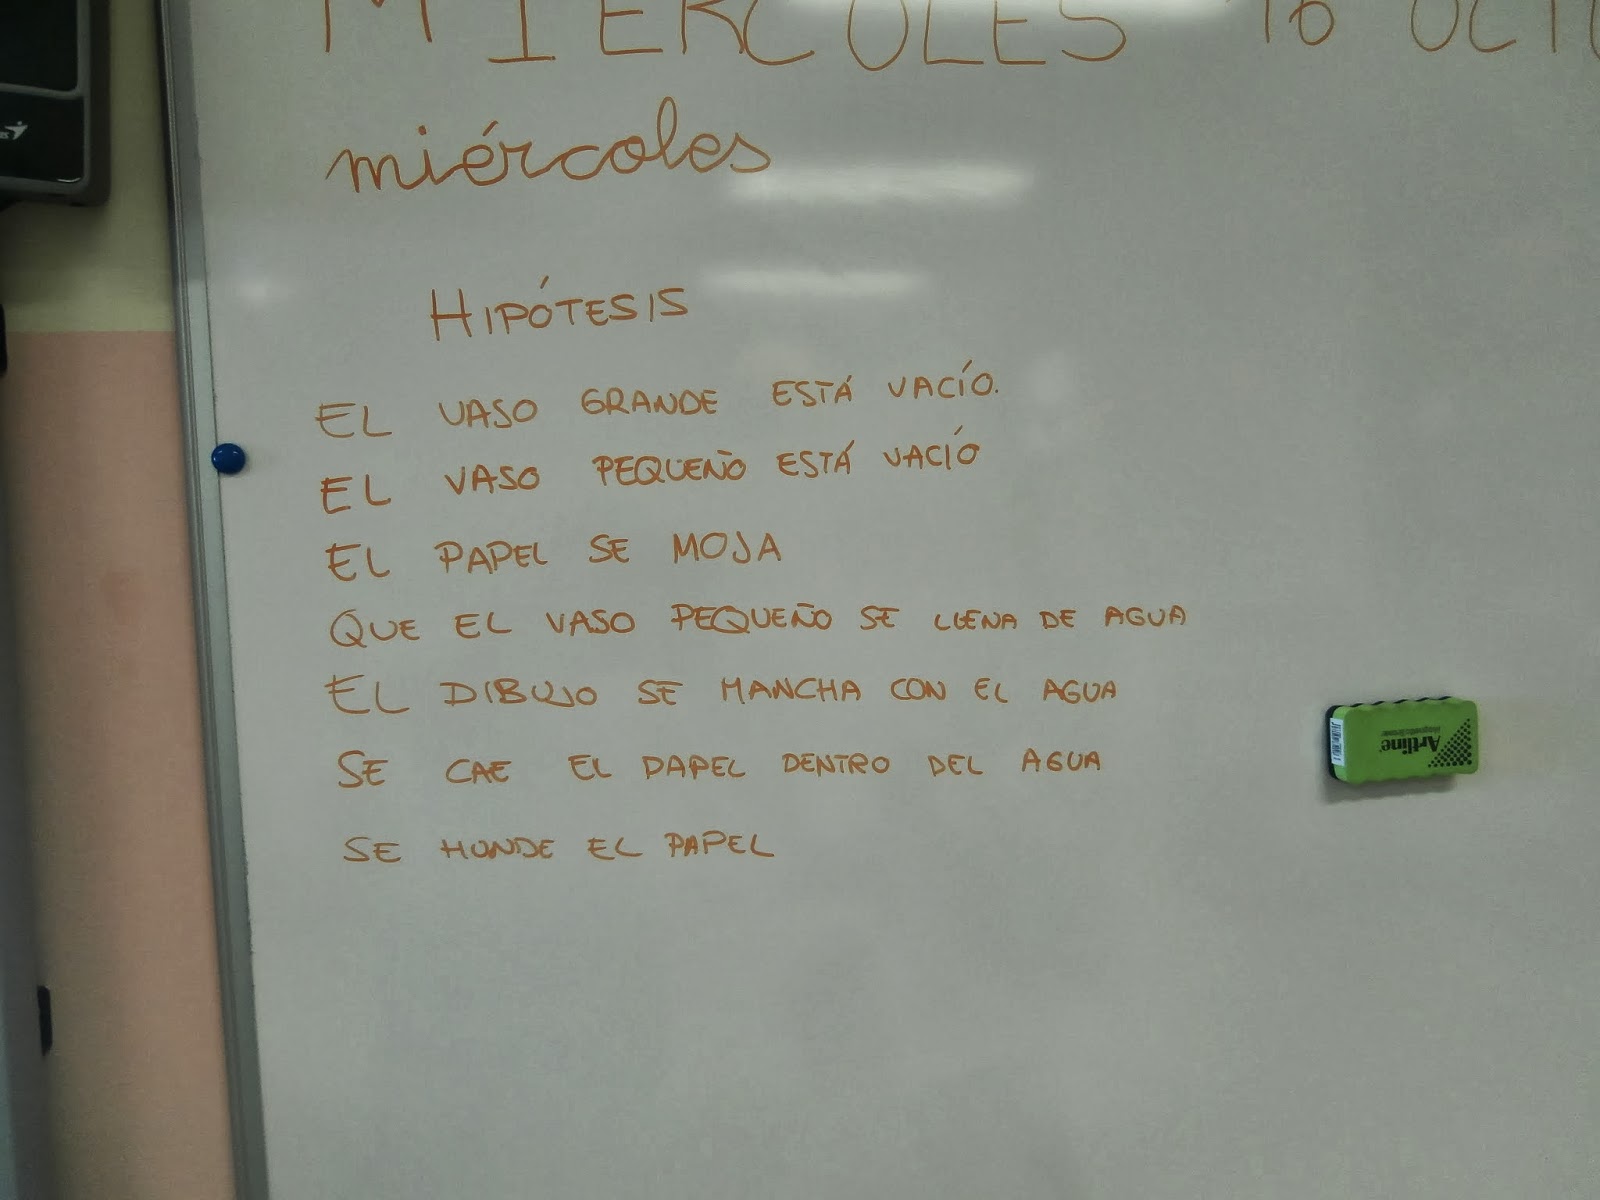 MIÉRCOLES 16 OCTU
miércoles
HIPÓTESIS
EL VASO GRANDE ESTÁ VACÍO.
EL VASO PEQUEÑO ESTÁ VACÍO
EL PAPEL SE MOJA
QUE EL VASO PEQUEÑO SE LLENA DE AGUA
EL DIBUJO SE MANCHA CON EL AGUA
SE CAE EL PAPEL DENTRO DEL AGUA
SE HUNDE EL PAPEL
Artline